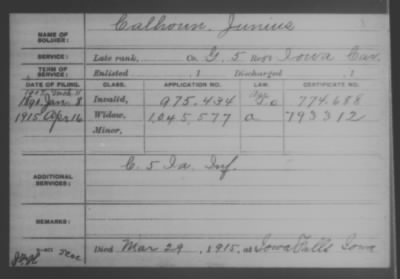 Calhoun, Junius
NAME OF SOLDIER:
SERVICE: Late rank, Co. G, 5 Reg't Iowa Cav.
TERM OF SERVICE: Enlisted , 1 Discharged , 1
DATE OF FILING. CLASS. APPLICATION NO. LAW. CERTIFICATE NO.
1891 Jan 8 Invalid, 975.434 774.688
1915 Apr 16 Widow, 1,045,577 a 793312
Minor,
ADDITIONAL SERVICES: C. 5 Ia. Inf.
REMARKS:
Died Mar 29, 1915, at Iowa Falls Iowa